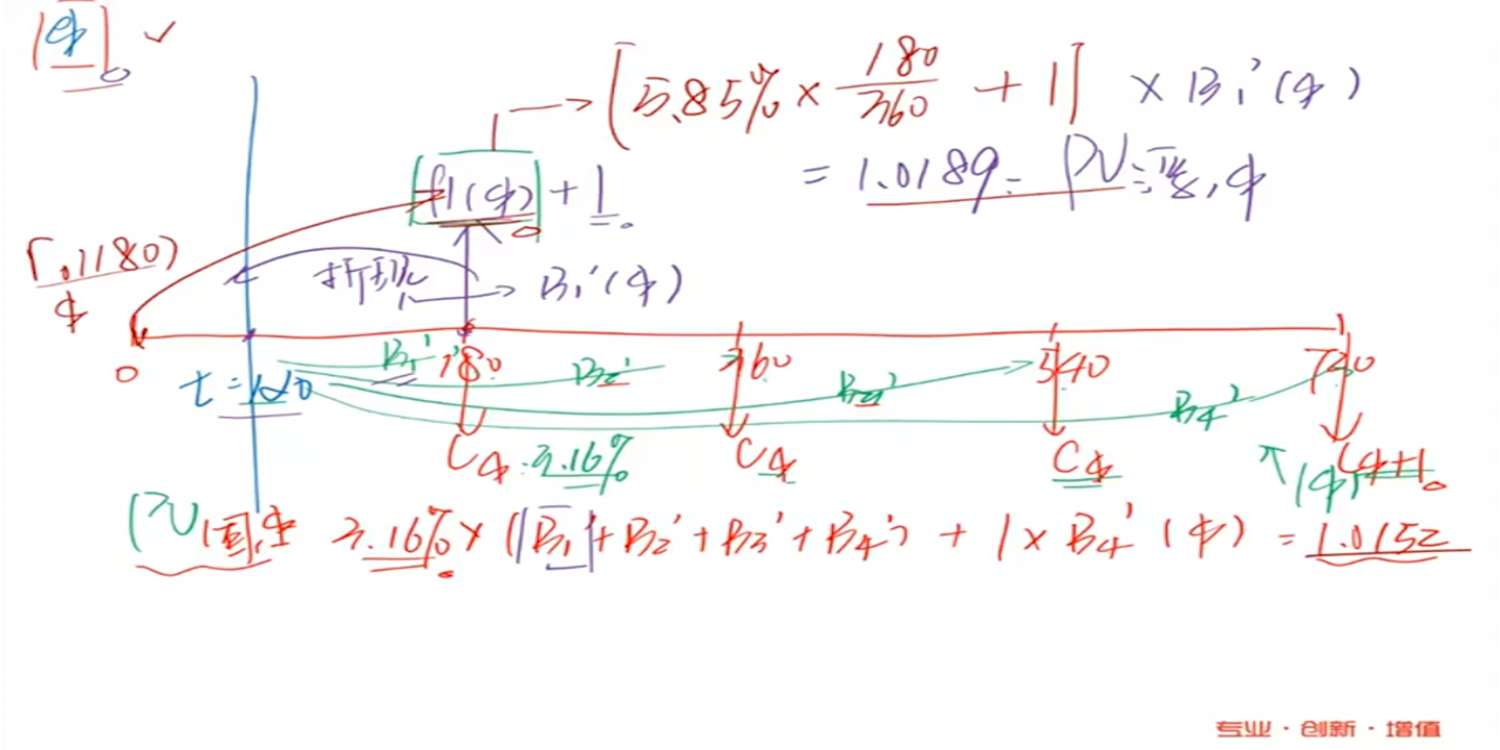 [5.85% × 180/360 + 1] × B₁'(¢)
= 1.0189 = PV浮,¢
fl(¢) + 1
r₀(180)
¢
折现 → B₁'(¢)
0
t=120
B₁' 180 B₂' 360 B₃' 540 B₄' 720
C¢ 3.16% C¢ C¢ C¢+1
PV固,¢ 3.16% × (B₁'+B₂'+B₃'+B₄') + 1×B₄'(¢) = 1.0152
专业·创新·增值